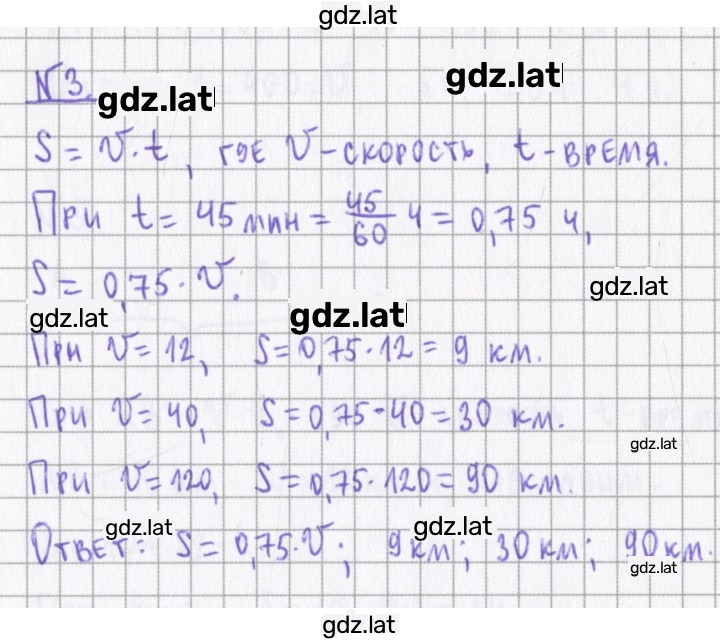 gdz.lat
№3. gdz.lat gdz.lat
S = V·t, где V – скорость, t – время.
При t = 45 мин = 45/60 ч = 0,75 ч,
S = 0,75·V. gdz.lat
gdz.lat gdz.lat
При V = 12, S = 0,75·12 = 9 км.
При V = 40, S = 0,75·40 = 30 км.
gdz.lat
При V = 120, S = 0,75·120 = 90 км.
gdz.lat gdz.lat
Ответ: S = 0,75·V; 9 км; 30 км; 90 км.
gdz.lat
gdz.lat